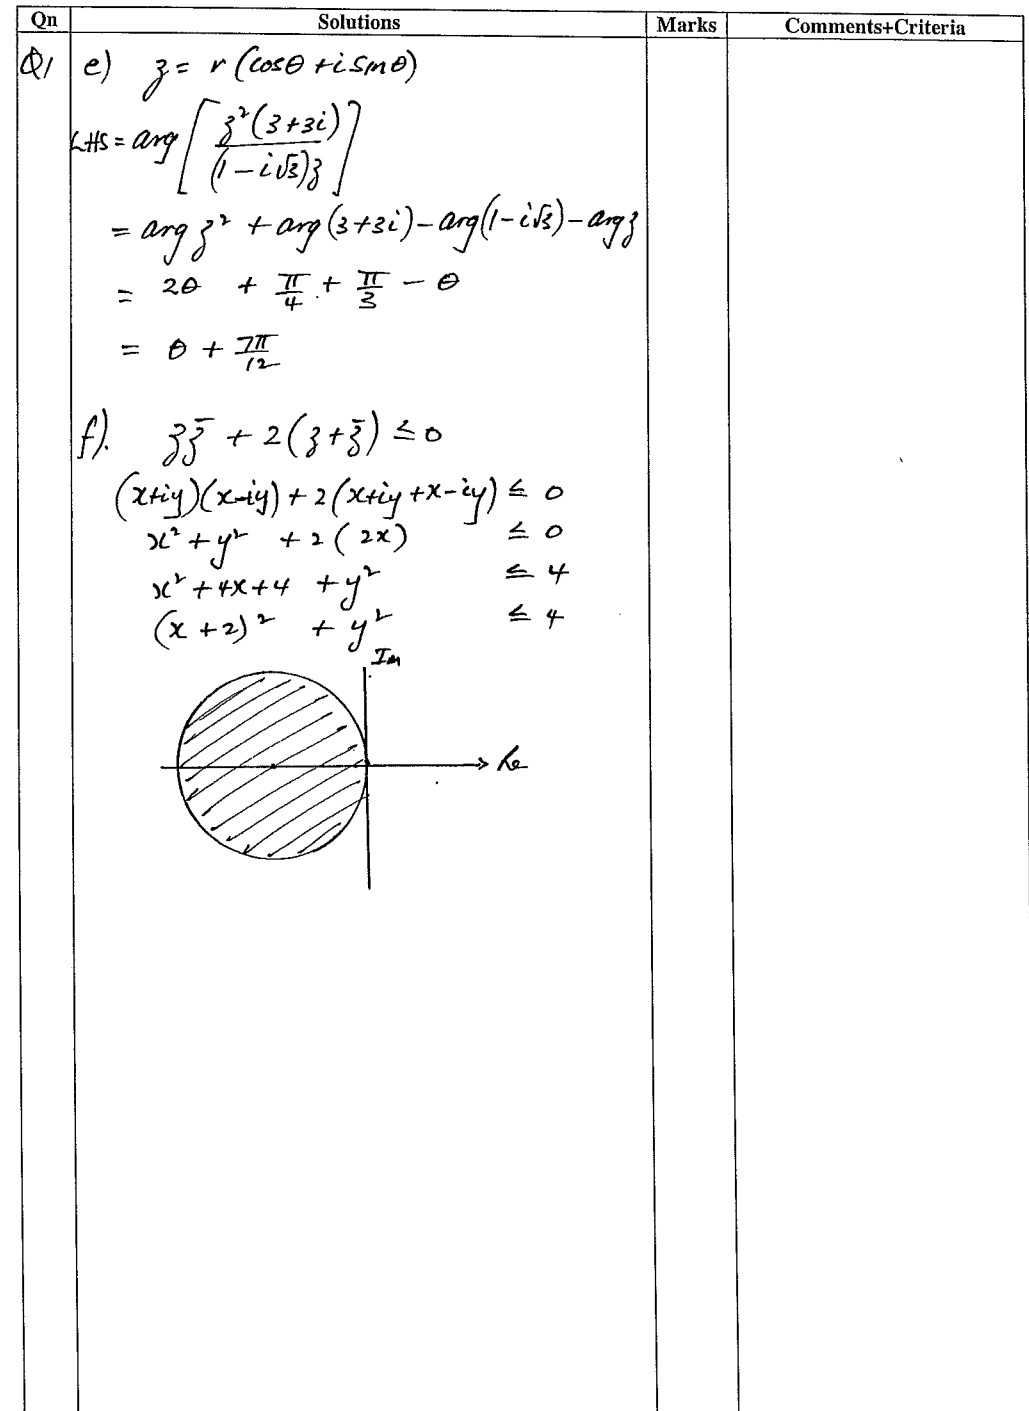 Qn Solutions Marks Comments+Criteria
Q1 e) z = r (cosθ + i sinθ)
LHS = arg [ z²(3+3i) / (1 - i√3)z ]
= arg z² + arg (3+3i) - arg(1-i√3) - arg z
= 2θ + π/4 + π/3 - θ
= θ + 7π/12
f). zz̄ + 2(z+z̄) ≤ 0
(x+iy)(x-iy) + 2(x+iy+x-iy) ≤ 0
x² + y² + 2( 2x) ≤ 0
x² + 4x + 4 + y² ≤ 4
(x + 2)² + y² ≤ 4
Im
Re